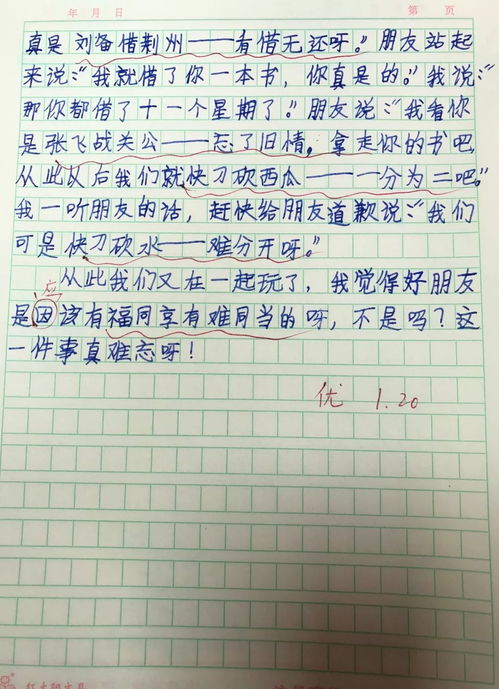 年 月 日 第 页
真是刘备借荆州——有借无还呀。”朋友站起
来说:“我就借了你一本书,你真是的。”我说:“
那你都借了十一个星期了。”朋友说:“我看你
是张飞战关公——忘了旧情。拿走你的书吧
从此以后我们就快刀砍西瓜——一分为二吧。”
我一听朋友的话,赶快给朋友道歉说:“我们
可是快刀砍水——难分开呀。”
从此我们又在一起玩了,我觉得好朋友
应
是因该有福同享有难同当的呀,不是吗?这
一件事真难忘呀!
优 1.20